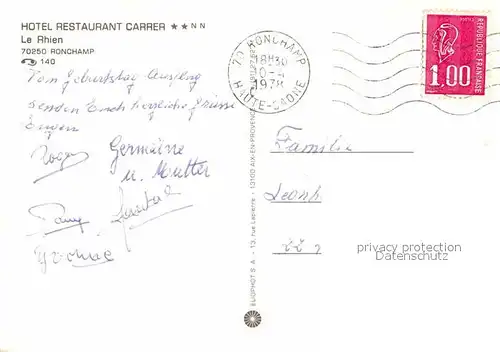 HOTEL RESTAURANT CARRER ★★ N N
Le Rhien
70250 RONCHAMP
140
Vom Geburtstag Ausflug
senden Euch herzliche Grüsse
Eugen
Roger Germaine
u. Moutter
Yvonne
70 RONCHAMP
18H30
1978
HAUTE-SAONE
1.00
POSTES
REPUBLIQUE FRANÇAISE
ELIOPHOT S A - 13, rue Lapierre - 13100 AIX-EN-PROVENCE
Familie
Leonh
privacy protection
Datenschutz